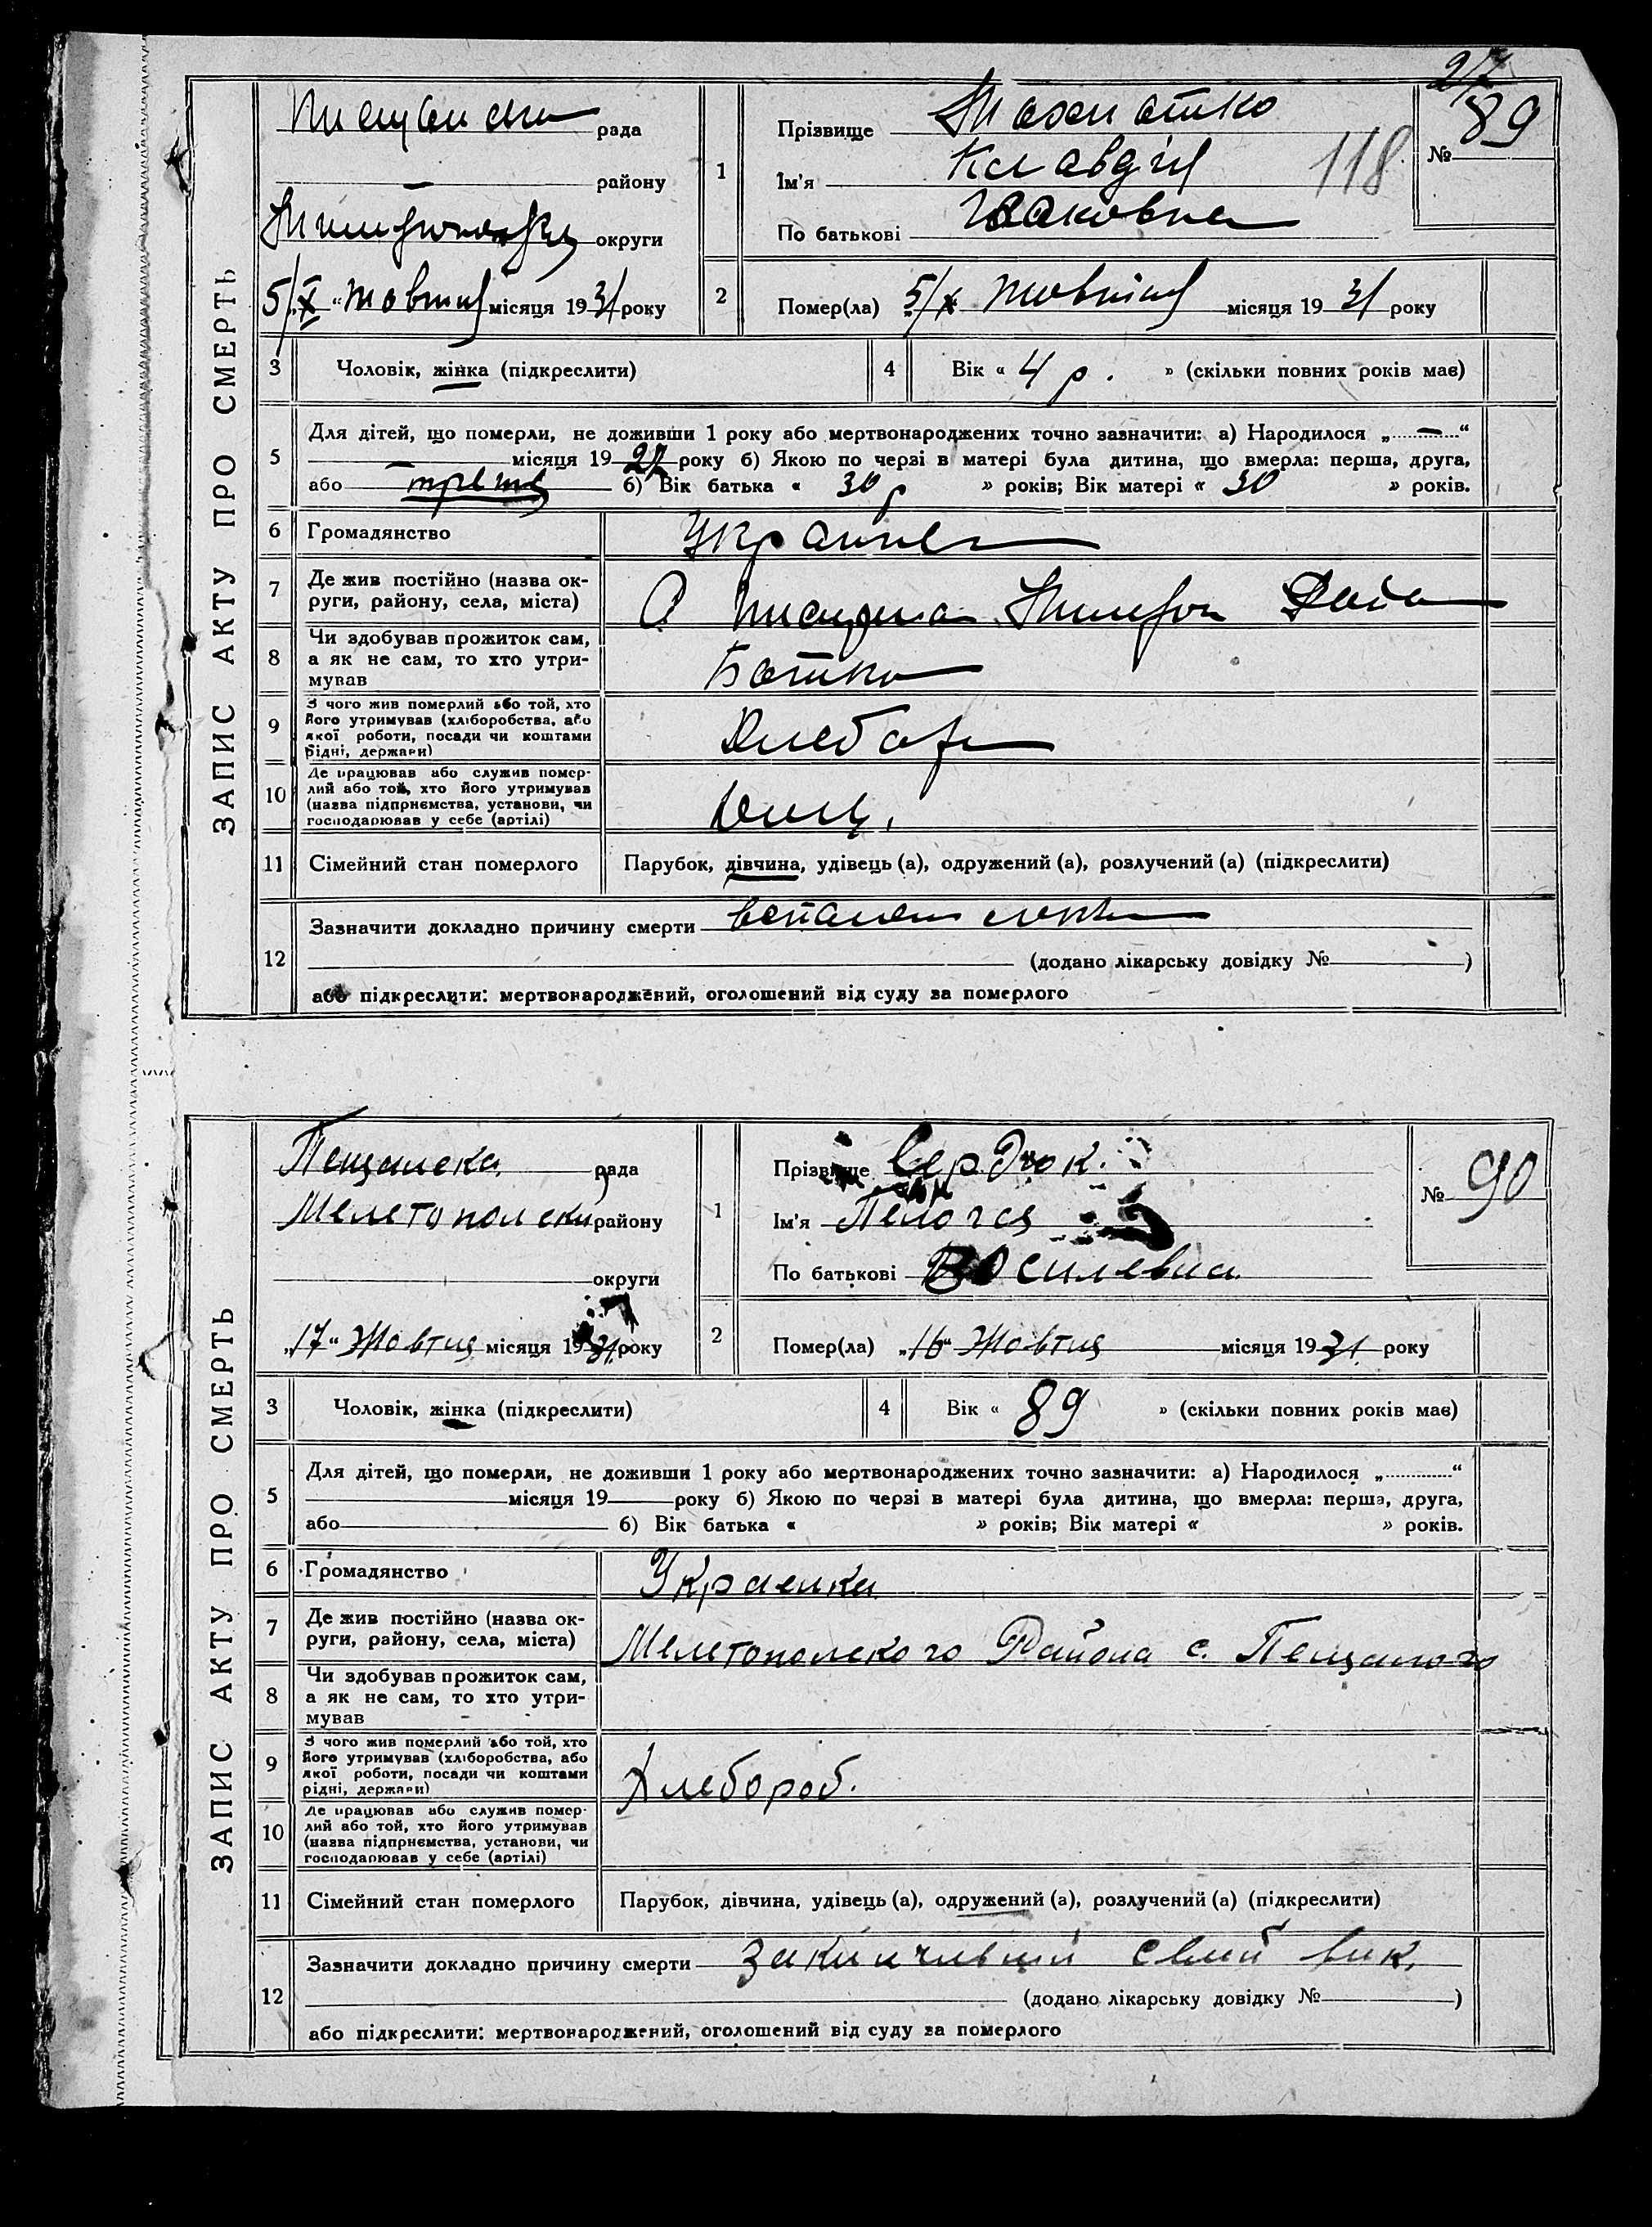 27
ЗАПИС АКТУ ПРО СМЕРТЬ
рада
району
округи
5/X „Жовтня місяця 1931 року
1
Прізвище
Ім'я Клавдія
118
По батькові Яковна
№ 89
2
Помер(ла) 5/X Жовтня місяця 1931 року
3 Чоловік, жінка (підкреслити)
4 Вік « 4 р. » (скільки повних років має)
5
Для дітей, що померли, не доживши 1 року або мертвонароджених точно зазначити: а) Народилося „ — “
— місяця 1927 року б) Якою по черзі в матері була дитина, що вмерла: перша, друга,
або третя б) Вік батька « 30 р » років; Вік матері « 30 » років.
6 Громадянство
7 Де жив постійно (назва ок-
руги, району, села, міста)
8 Чи здобував прожиток сам,
а як не сам, то хто утри-
мував
Батько
9 З чого жив померлий або той, хто
його утримував (хліборобства, або
якої роботи, посади чи коштами
рідні, держави)
10 Де працював або служив помер-
лий або той, хто його утримував
(назва підприємства, установи, чи
господарював у себе (артілі)
11 Сімейний стан померлого Парубок, дівчина, удівець (а), одружений (а), розлучений (а) (підкреслити)
12
Зазначити докладно причину смерти
(додано лікарську довідку № )
або підкреслити: мертвонароджений, оголошений від суду за померлого
ЗАПИС АКТУ ПРО СМЕРТЬ
Пещанска рада
Мелетополски району
округи
„17“ Жовтня місяця 1931 року
1
Прізвище Сердюк.
Ім'я Пелогея
По батькові Василевна
№ 90
2
Помер(ла) „16“ Жовтня місяця 1931. року
3 Чоловік, жінка (підкреслити)
4 Вік « 89 » (скільки повних років має)
5
Для дітей, що померли, не доживши 1 року або мертвонароджених точно зазначити: а) Народилося „ “
місяця 19 року б) Якою по черзі в матері була дитина, що вмерла: перша, друга,
або б) Вік батька « » років; Вік матері « » років.
6 Громадянство Украенка
7 Де жив постійно (назва ок-
руги, району, села, міста)
Мелетополского Района с. Пещаного
8 Чи здобував прожиток сам,
а як не сам, то хто утри-
мував
9 З чого жив померлий або той, хто
його утримував (хліборобства, або
якої роботи, посади чи коштами
рідні, держави)
Хлебороб.
10 Де працював або служив помер-
лий або той, хто його утримував
(назва підприємства, установи, чи
господарював у себе (артілі)
11 Сімейний стан померлого Парубок, дівчина, удівець (а), одружений (а), розлучений (а) (підкреслити)
12
Зазначити докладно причину смерти закінчивший свий вик.
(додано лікарську довідку № )
або підкреслити: мертвонароджений, оголошений від суду за померлого